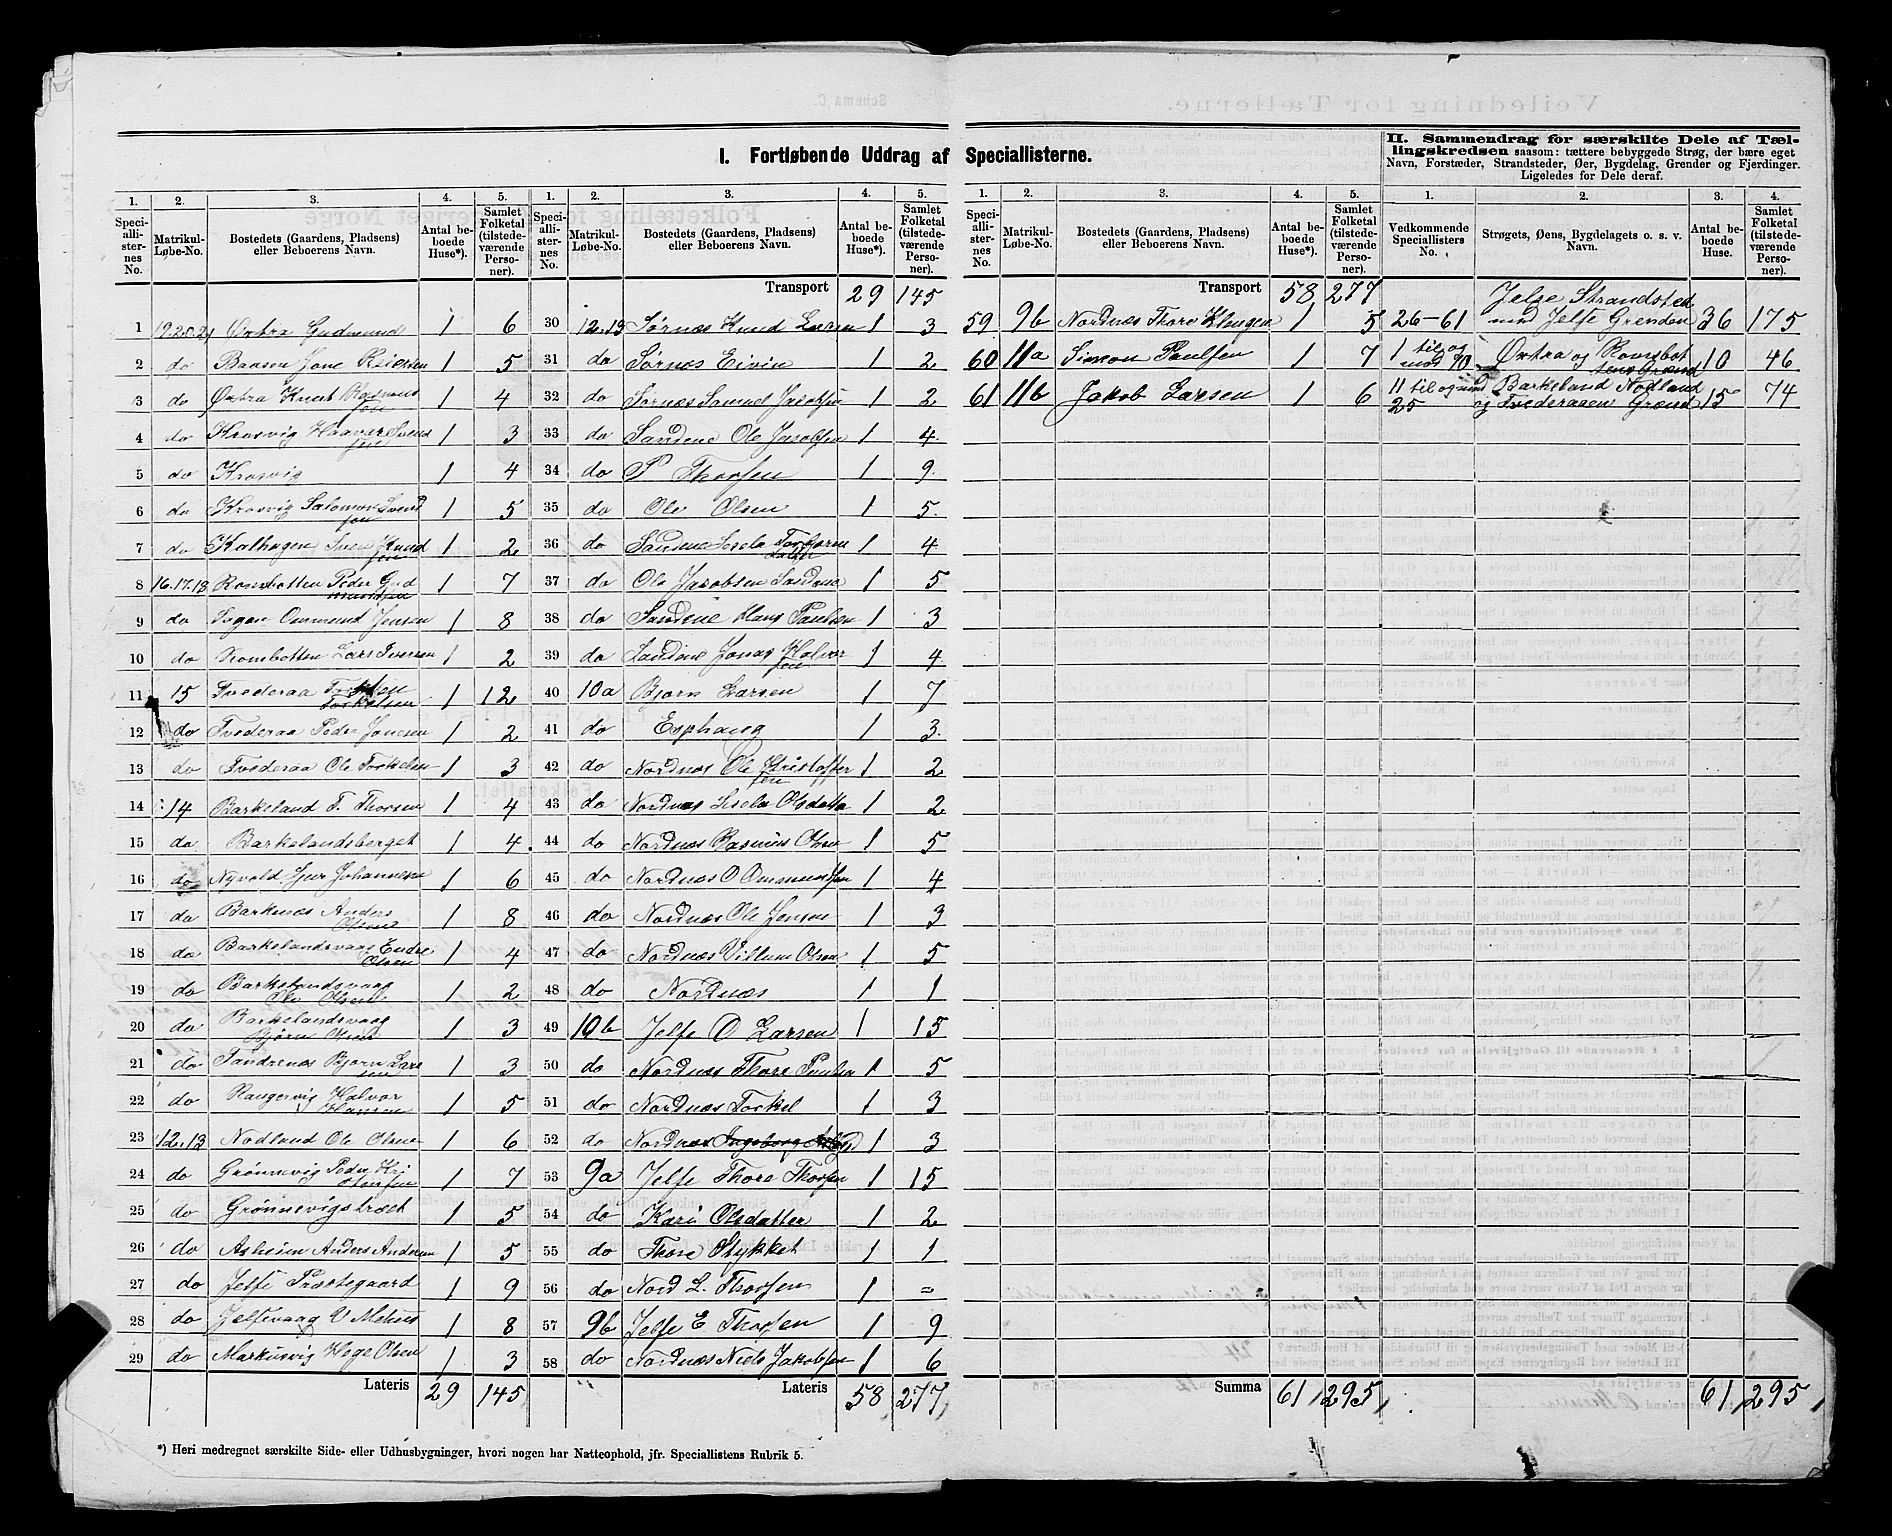 I. Fortløbende Uddrag af Speciallisterne.
II. Sammendrag for særskilte Dele af Tæl-
lingskredsen saasom: tættere bebyggede Strøg, der bære eget
Navn, Forstæder, Strandsteder, Øer, Bygdelag, Grender og Fjerdinger.
Ligeledes for Dele deraf.
1. 2. 3. 4. 5. 1. 2. 3. 4. 5.
Speciallisternes No. Matrikul-Løbe-No. Bostedets (Gaardens, Pladsens) eller Beboerens Navn. Antal beboede Huse*). Samlet Folketal (tilstedeværende Personer).
Transport 29 145
1 19.20.21 Øxtra Gudmund 1 6
2 do Baasen Jone Reiersen 1 5
3 do Øxtra Knut Rasmussen 1 4
4 do Krosvig Haavar Svendsen 1 3
5 do Krosvig 1 4
6 do Krosvig Salomon Svendsen 1 5
7 do Kalhagen Iver Knudsen 1 2
8 16.17.18 Rombotten Peder Gudmundsen 1 7
9 do Ommund Jensen 1 8
10 do Rombotten Lars Iversen 1 2
11 15 Tvederaa Torkelsen 1 12
12 do Tvederaa Peder Jonesen 1 2
13 do Tvederaa Ole Torkelsen 1 3
14 14 Barkeland T. Thorsen 1 4
15 do Barkelandsberget 1 4
16 do Nyvold Sjur Johannesen 1 6
17 do Barknæs Anders Olsen 1 8
18 do Barkelandsvaag Endre Olsen 1 4
19 do Barkelandsvaag Ole Olsen 1 2
20 do Barkelandsvaag Bjørn 1 3
21 do Tandrenæs Bjørn Larssen 1 3
22 do Rangervig Halvor Hansen 1 5
23 12.13 Nodland Ole Olsen 1 6
24 do Grønnevig Peder Kristensen 1 7
25 do Grønnevigstræet 1 5
26 do Asheim Anders Andersen 1 5
27 do Jelse Præstegaard 1 9
28 do Jelsevaag V Mehus 1 8
29 do Markusvig Olsen 1 3
Lateris 29 145
30 12.13 Sørnæs Knud Larsen 1 3
31 do Sørnæs Eivin 1 2
32 do Sørnæs Samuel Jacobsen 1 2
33 do Sandene Ole Jacobsen 1 4
34 do P Thorsen 1 9
35 do Ole Olsen 1 5
36 do Sandene Sisela 1 4
37 do Ole Jacobsen Sandene 1 5
38 do Sandene Hans Paulsen 1 3
39 do Sandene Jonas Halvorsen 1 4
40 10a Bjørn Larsen 1 7
41 do Esphaug 1 3
42 do Nordnæs Ole Kristoffersen 1 2
43 do Nordnæs Sisela Olsdatter 1 2
44 do Nordnæs Rasmus Olsen 1 5
45 do Nordnæs O Ommundsen 1 4
46 do Nordnæs Ole Jonsen 1 3
47 do Nordnæs Villum Olsen 1 5
48 do Nordnæs 1 1
49 10b Jelse O Larsen 1 15
50 do Nordnæs Thore Paulsen 1 5
51 do Nordnæs Torkel 1 3
52 do Nordnæs Ingeborg 1 3
53 9a Jelse Thore Thorsen 1 15
54 do Kari Olsdatter 1 2
55 do Thore Stykket 1 1
56 do Nord L. Thorsen 1 =
57 9b Jelse E Thorsen 1 9
58 do Nordnæs Niels Jakobsen 1 6
Lateris 58 277
1. 2. 3. 4. 5. 1. 2. 3. 4.
Speciallisternes No. Matrikul-Løbe-No. Bostedets (Gaardens, Pladsens) eller Beboerens Navn. Antal beboede Huse*). Samlet Folketal (tilstedeværende Personer).
Transport 58 277
59 9b Nordnæs Thore Klungen 1 5
60 11a Simon Paulsen 1 7
61 11b Jakob Larsen 1 6
Summa 61 295
Vedkommende Speciallisters No. Strøgets, Øens, Bygdelagets o. s. v. Navn. Antal beboede Huse. Samlet Folketal (tilstedeværende Personer).
26-61 Jelse Strandsted med Jelse Grenden 36 175
1 til og med 10 Øxtra og Rombottens Grænd 10 46
11 til og med 25 Barkeland Nodland og Tvederaaen Grænd 15 74
61 295
*) Heri medregnet særskilte Side- eller Udhusbygninger, hvori nogen har Natteophold, jfr. Speciallistens Rubrik 5.